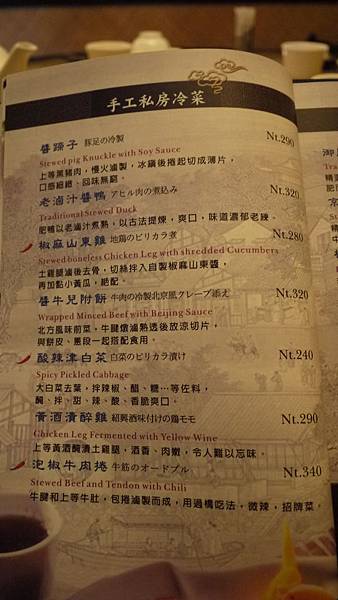 手工私房冷菜
醬蹄子 豚足の冷製 Nt.290
Stewed pig Knuckle with Soy Sauce
上等黑豬肉，慢火滷製，冰鎮後捲起切成薄片，
口感細緻、回味無窮。
老滷汁醬鴨 アヒル肉の煮込み Nt.320
Traditional Stewed Duck
肥鴨以老滷汁煮熟，以古法提煉，爽口，味道濃郁老練。
椒麻山東雞 地鶏のピリカラ煮 Nt.280
Chicken Leg Stewed boneless with shredded Cucumbers
土雞腿滷後去骨，切絲拌入自製椒麻山東醬，
再加點小黃瓜，絕配。
醬牛兒附餅 牛肉の冷製北京風クレープ添え Nt.320
Wrapped Minced Beef with Beijing Sauce
北方風味前菜，牛腱燉滷熟透後放涼切片，
與餅皮、蔥段一起搭配食用。
酸辣漬白菜 白菜のピリカラ漬け Nt.240
Spicy Pickled Cabbage
大白菜去葉，拌辣椒、醋、糖…等佐料，
醃、拌、甜、辣、酸、香脆爽口。
黃酒漬醉雞 紹興酒味付けの鶏モモ Nt.290
Chicken Leg Fermented with Yellow Wine
上等黃酒醃漬土雞腿，酒香、肉嫩，令人難以忘味。
泡椒牛肉捲 牛筋のオードブル Nt.340
Stewed Beef and Tendon with Chili
牛腱和上等牛肚，包捲滷製而成，用過橋吃法，微辣，招牌菜。